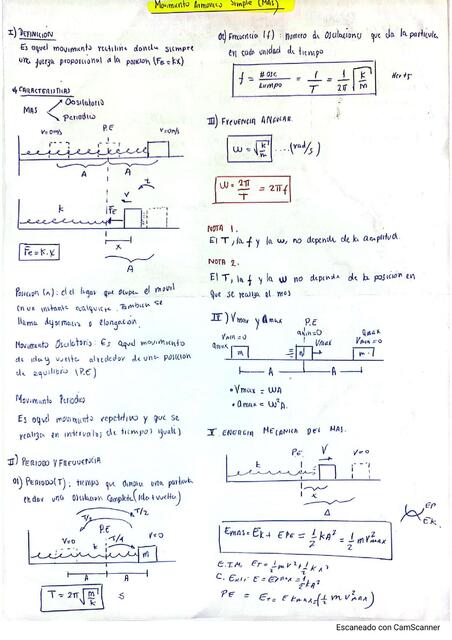 Movimiento Armonico Simple (MAS)
I) DEFINICIÓN
Es aquel movimiento rectilineo donde siempre
una fuerza proporcional a la posicion (Fe=kx)
CARACTERISTICAS
MAS
Oscilatorio
Periodico
v=0m/s
P.E
v=0m/s
A
A
k
Fe
v
x
A
Fe=K.x
Posicion (x): el lugar que ocupa el movil
en un instante cualquiera. Tambien se
llama o elongación.
Movimiento Oscilatorio: Es aquel movimiento
de ida y vuelta alrededor de una posicion
de equilibrio (P.E)
Movimiento Periodico
Es aquel movimiento repetitivo y que se
realiza en intervalos de tiempos iguales
II) PERIODO Y FRECUENCIA
01) PERIODO(T): tiempo que una particula
en dar una oscilacion completa (ida+vuelta)
T/2
T/2
P.E
v=0
k
T/4
v=0
m
A
A
T = 2π√m/k
s
02) Frecuencia (f): numero de Oscilaciones que da la particula
en cada unidad de tiempo
f = #osc/tiempo = 1/T = 1/2π √k/m
III) FRECUENCIA ANGULAR
ω = √k/m ....(rad/s)
ω = 2π/T = 2πf
NOTA 1.
El T, la f y la ω, no depende de la amplitud.
NOTA 2.
El T, la f y la ω no depende de la posicion en
que se realiza el mas
IV) Vmax y amax
P.E
amin=0
Vmin=0
amax
m
Vmax
amax
Vmin=0
m
A
A
• Vmax = ωA
• amax = ω²A.
V. ENERGIA MECANICA DEL MAS.
P.E
V
v=0
k
x
A
EMAS = EK + EPE = 1/2 kA² = 1/2 mv²max
EP
EK
E.I.M.
PE =
Escaneado con CamScanner